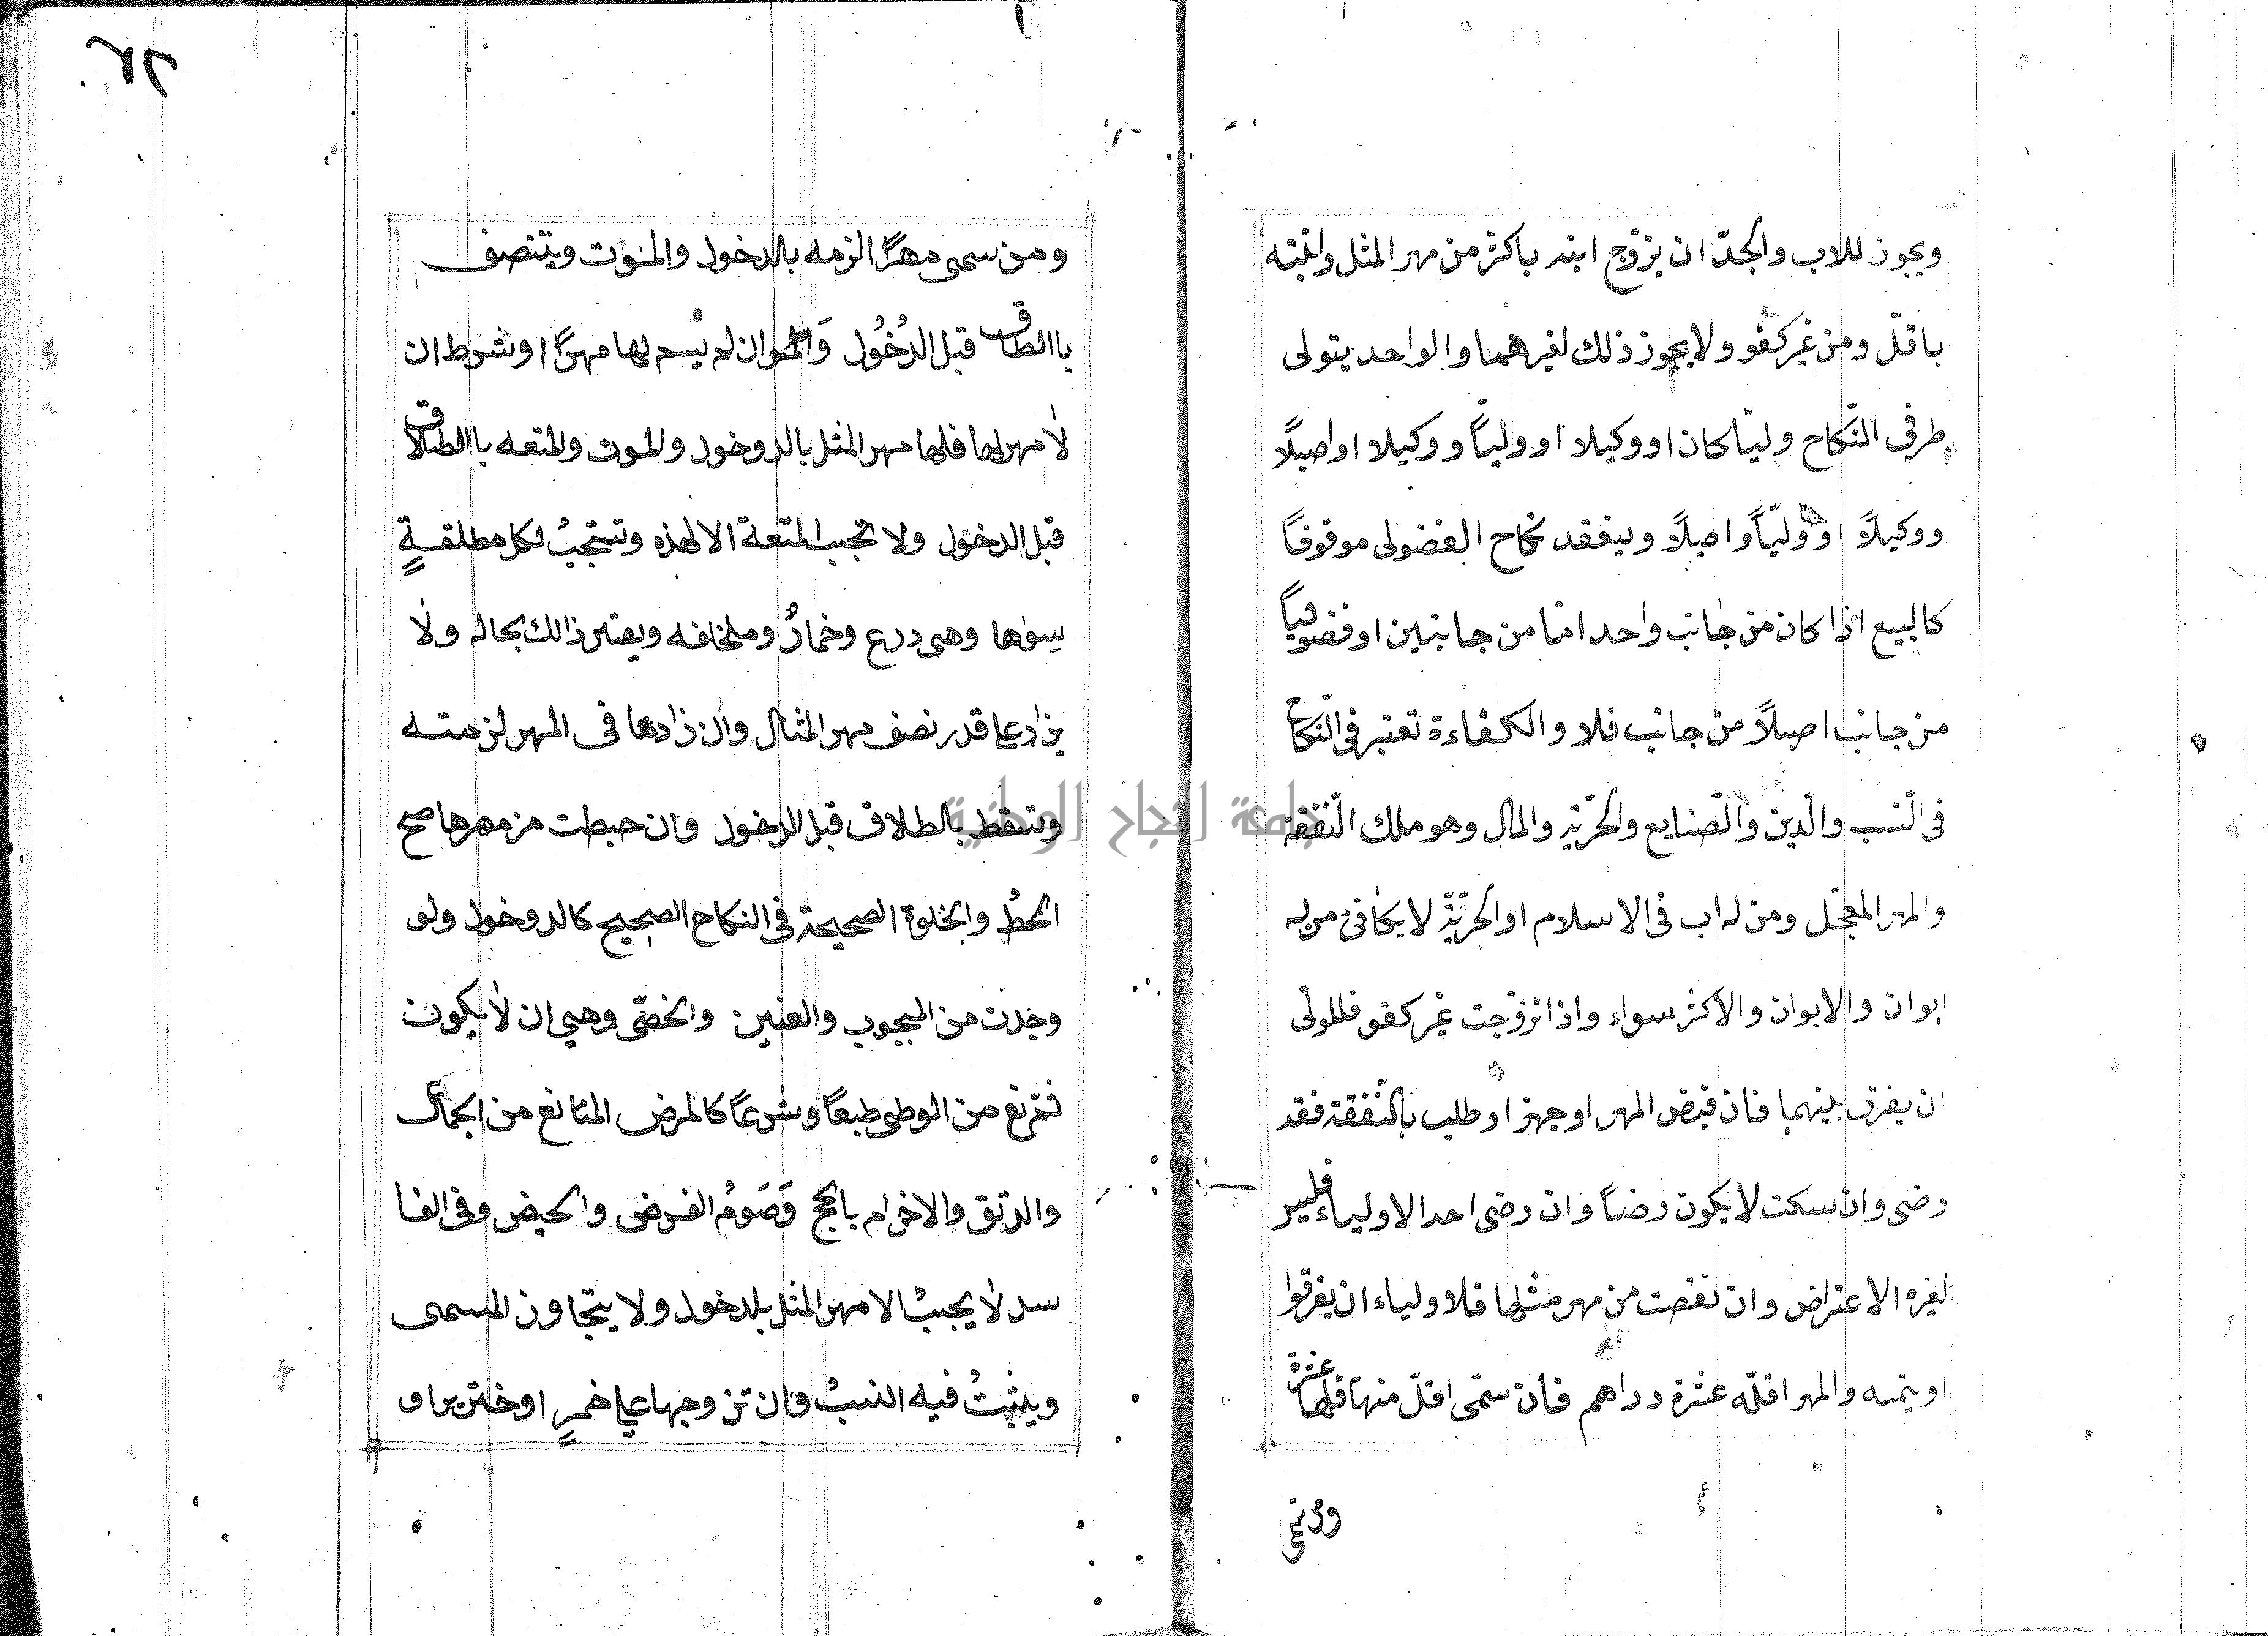 ويجوز للاب والجدّ ان يزوّج ابنه باكثر من مهر المثل وابنته
باقلّ ومن غير كفو ولا يجوز ذلك لغيرهما والواحد يتولى
طرفى النّكاح وليّا كان او وكيلا او وليّاً ووكيلا او اصيلاً
ووكيلاً او وليّاً واصيلاً وينعقد نكاح الفضولى موقوفاً
كالبيع اذا كان من جانب واحد امّا من جانبين او فضوليّاً
من جانب اصيلاً من جانب فلا والكفاءة تعتبر فى النّكاح
فى النّسب والدّين والصّنايع والحرّيّة والمال وهو ملك النّفقة
والمهر المعجّل ومن له اب فى الاسلام او الحرّيّة لا يكافئ من له
ابوان والابوان والاكثر سواء واذا تزوّجت غير كفو فللولىّ
ان يفرق بينهما فان قبض المهر او جهز او طلب بالنّفقة فقد
رضى وان سكت لا يكون رضاً وان رضى احد الاولياء فليس
لغيره الاعتراض وان نقصت من مهر مثلها فلاولياء ان يفرقوا
او يتمه والمهر اقلّه عشرة دراهم فان سمّى اقلّ منها فلها عشرة
ومن سمى
ومن سمى مهرًا الزمه بالدخول والموت ويتنصف
باالطلاق قبل الدُخُول وَالموان لم يسم لها مهرًا او شرط ان
لا مهر لها فلها مهر المثل بالدوخول والموت والمتعه باالطلاق
قبل الدخول ولا تجب المتعة الا لهذه وتستحبُ لكل مطلقةٍ
سوٰها وهى درع وخمارٌ وملحفه ويعتبر ذالك بحاله ولا
يزاد على قدر نصف مهر المثال وان زادها فى المهر لزمته
وتسقط بالطلاق قبل الدخول وان حبطت من مهرها صح
الحطُ والخلوة الصحيحة فى النكاح الصحيح كالدوخول ولو
وجدت من المجبوب والعنين والخصّى وهى ان لا يكون
ثمّ نع من الوطى طبعًا وشرعًا كالمرض المانع من الجماع
والرتق والاحرام بالحج وَصَومُ الفرض والحيض وفى الفا
سد لا يجبُ الا مهر المثل بلدخول ولا يتجاوز المسمى
ويثبتُ فيه النسبُ وان تزوجها على خمرٍ او خنزير او
جامعة النجاح الوطنية